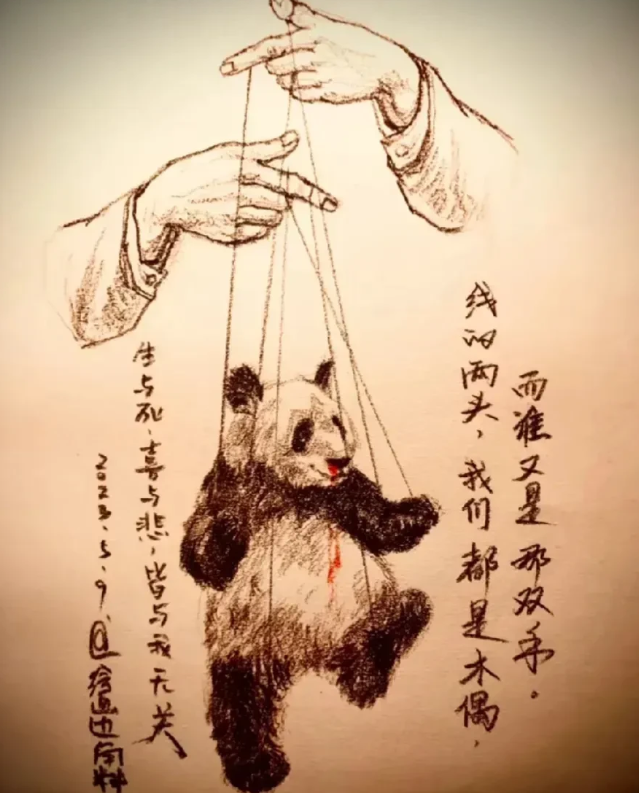 线的两头，我们都是木偶，
而谁又是那双手。
生与死，喜与悲，皆与我无关
2023.5.9 @